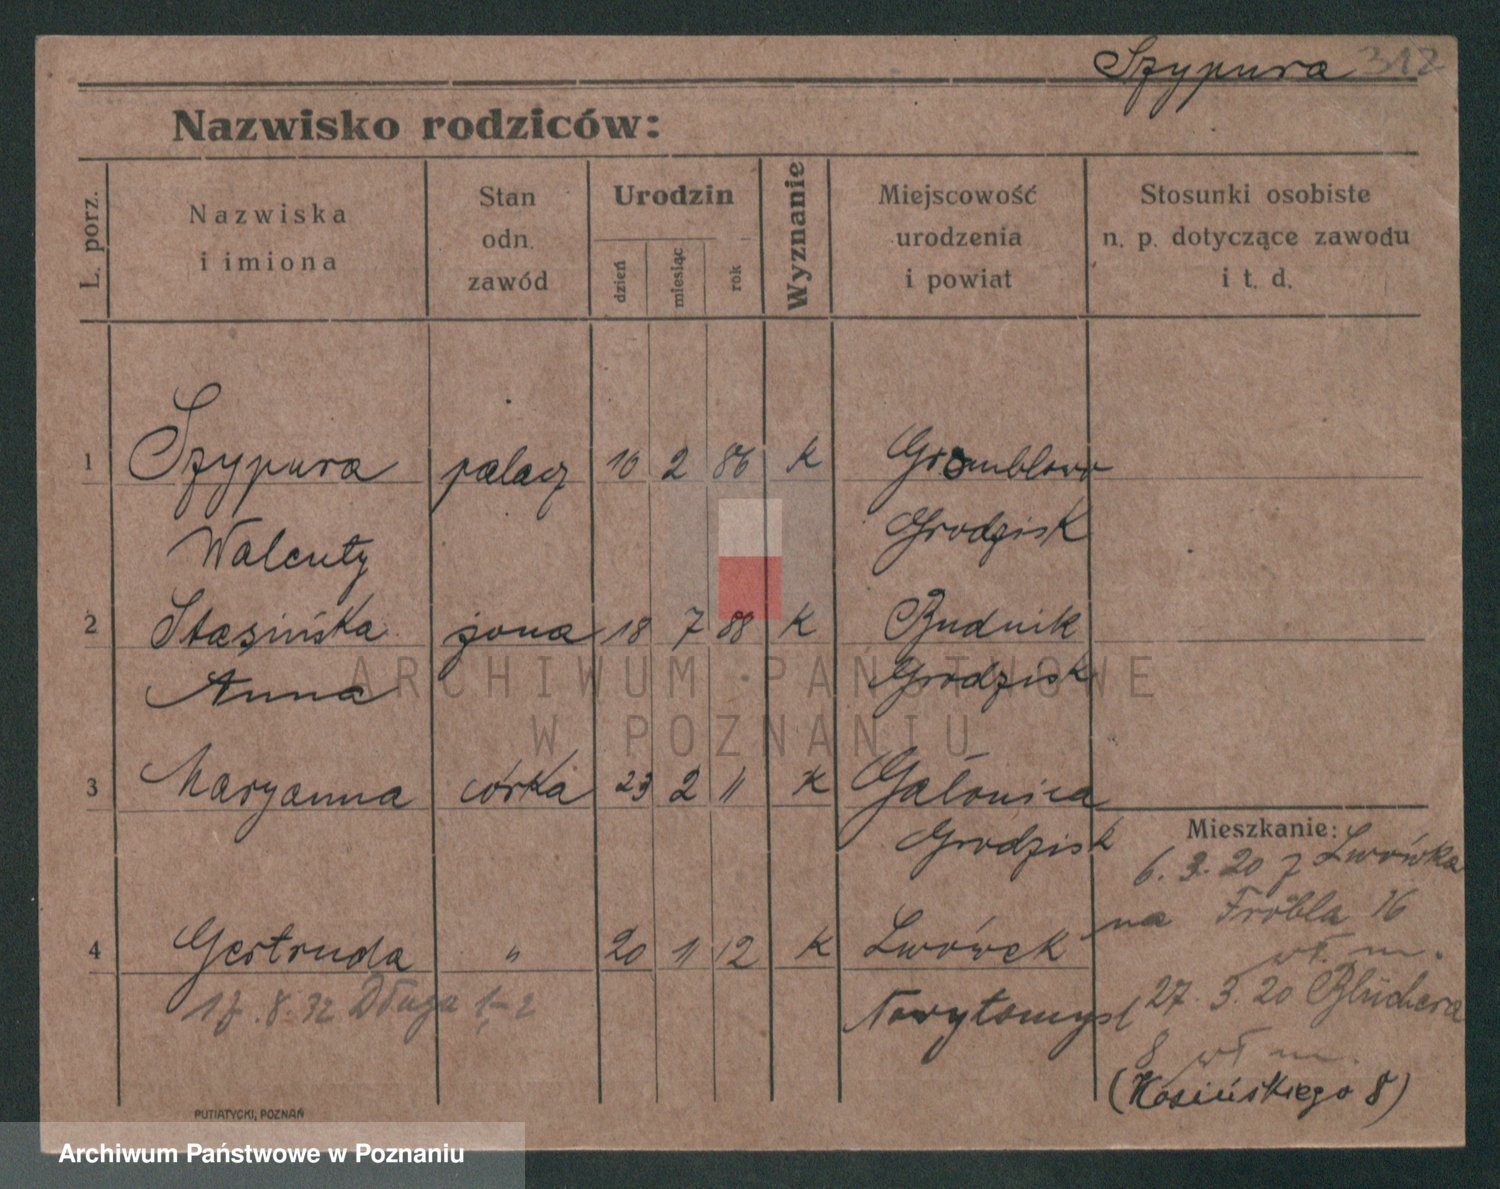 Szypura 317
Nazwisko rodziców:
L. porz.
Nazwiska
i imiona
Stan
odn.
zawód
Urodzin
dzień
miesiąc
rok
Wyznanie
Miejscowość
urodzenia
i powiat
Stosunki osobiste
n. p. dotyczące zawodu
i t. d.
1 Szypura palacz 10 2 86 K Gromblewo
Walenty Grodzisk
2 Stasińska żona 18 7 88 K Rudnik
Anna Grodzisk
3 Maryanna córka 23 2 11 K
Grodzisk
4 Gertruda " 20 11 12 K Lwówek
Nowytomysl
17.8.32 Długa
Mieszkanie:
6.3.20 z Lwówka
na Fröbla 16
wł. m.
27.3.20 Blüchera
8 wł m.
(Kosińskiego 8)
PUTIATYCKI, POZNAŃ
ARCHIWUM PAŃSTWOWE
W POZNANIU
Archiwum Państwowe w Poznaniu